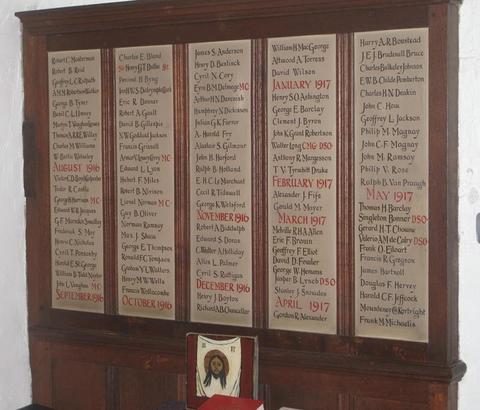 Robert C. Masterman
Robert B. Reid
Geoffrey L. C. Ralpath
A.M.M. Robertson Walker
George B. Tyser
Basil C. L.
Martyn T. Vaughan Jones
Thomas A.R.R.E. Willey
Charles M. Williams
W. Bertie Wolseley
AUGUST 1916
Tudor R. Castle
George Harrison MC
Edward W.R. Jacques
G.F. Marsden Smedley
Frederick S. Moy
Henry C. Nicholas
Cyril T. Ponsonby
Harold E. St George
William B. Todd Naylor
John L. Vaughan MC
SEPTEMBER 1916
Charles E. Bland
Sir Henry G.T. Bt
Percival H. Byng
Ion H.W.S. Dalrymple
Eric R. Donner
Robert A. Gault
David B. Gillespie
N.W. Goddard Jackson
Francis Grissell
Armar Lowry Corry MC
Edward L. Lyon
Hubert F. Miles
Robert B. Nivison
Lionel Norman MC
Guy B. Oliver
Norman Ramsay
Max. J. Shaw
George E. Thompson
Ronald F.C. Tompson
Gaston V. L. Walters
Henry M.W. Wells
Francis Wallscombe
OCTOBER 1916
James S. Anderson
Henry D. Bentinck
Cyril N. Cory
Eyre B.M. Delmege MC
Arthur H.N. Devenish
Humphrey N. Dickinson
Julian G.K. Farrer
A. Harold Fry
Alastair S. Gilmour
John H. Harford
Ralph B. Holland
E. H. C. le Marchant
Cecil R. Tidswell
George K. Welsford
NOVEMBER 1916
Robert A. Biddulph
Edward S. Doras
C. Walter A. Holliday
Allen L. Palmer
Cyril S. Rattigan
DECEMBER 1916
Henry J. Boyton
Richard A.B. Chancellor
William H. MacGeorge
Attwood A. Torrens
David Wilson
JANUARY 1917
Henry S.O. Ashington
George E. Barclay
Clement J. Byron
John K. Grant Robertson
Walter Long CMG DSO
Anthony R. Margesson
T. V. Tyrwhitt Drake
FEBRUARY 1917
Alexander J. Fife
Gould M. Mayer
MARCH 1917
Melville R.H.A. Allen
Eric F. Brown
Geoffrey F. Elliot
David D. Fowler
George W. Honans
Jasper B. Lynch DSO
Stanier J. Snowden
APRIL 1917
Gordon R. Alexander
Harry A. R. Boustead
J.E.J. Brudenell Bruce
Charles Balkeley Johnson
E.W.B. Childe Pemberton
Charles H.N. Deakin
John C. How
Geoffrey L. Jackson
Philip M. Magnay
John C.F. Magnay
John M. Ramsay
Philip V. Rose
Ralph B. Van Praagh
MAY 1917
Thomas H. Barclay
Singleton Bonner DSO
Gerard H.T. Choune
Valerio A.M. de Calry DSO
Frank O. Eiloart
Francis R. Gregson
James Hartnoll
Douglas F. Hervey
Harold C.F. Jeffcock
Mountenev Kortright
Frank M. Michaelis